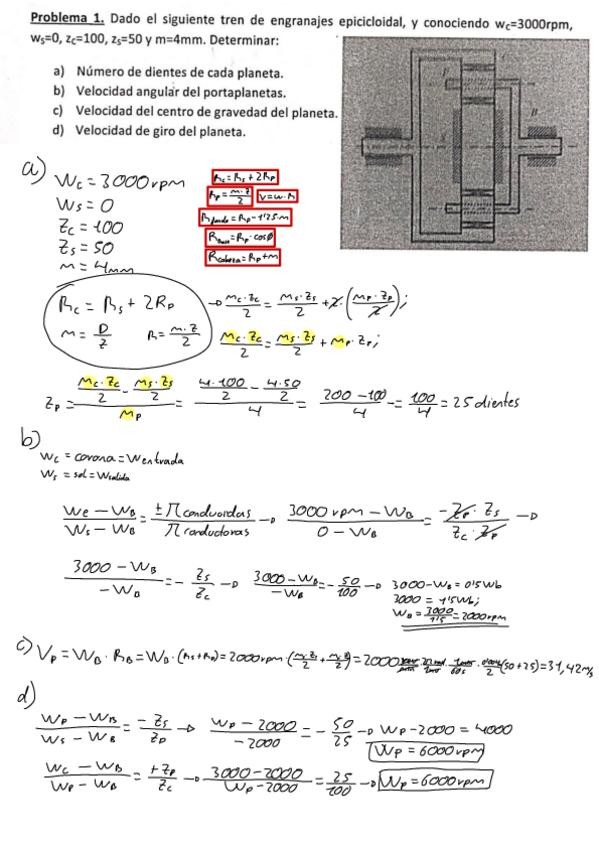 Problema 1. Dado el siguiente tren de engranajes epicicloidal, y conociendo wc=3000rpm,
ws=0, zc=100, zs=50 y m=4mm. Determinar:
a) Número de dientes de cada planeta.
b) Velocidad angular del portaplanetas.
c) Velocidad del centro de gravedad del planeta.
d) Velocidad de giro del planeta.
a) Wc = 3000rpm
Ws = 0
Zc = 100
Zs = 50
m = 4mm
Rc = Rs + 2Rp
Rp = m·z/2 V = w·R
Rfondo = Rp - 1'25·m
Rbase = Rp·cosø
Rcabeza = Rp + m
Rc = Rs + 2Rp → mc·Zc/2 = ms·Zs/2 + 2·(mp·Zp/2);
m = D/Z R = m·Z/2 mc·Zc/2 = ms·Zs/2 + mp·Zp;
Zp = (mc·Zc/2 - ms·Zs/2)/mp = (4·100/2 - 4·50/2)/4 = (200-100)/4 = 100/4 = 25 dientes
b)
Wc = corona = Wentrada
Ws = sol = Wsalida
(We - WB)/(Ws - WB) = ±∏conducidas/∏conductoras → (3000rpm - WB)/(0 - WB) = -Zp·Zs/Zc·Zp →
(3000 - WB)/-WB = - Zs/Zc → (3000 - WB)/-WB = - 50/100 → 3000 - WB = 0'5Wb
3000 = 1'5Wb;
WB = 3000/1'5 = 2000rpm
c) Vp = WB · RB = WB·(Rs+Rp) = 2000rpm (m·Zs/2 + m·Zp/2) = 2000 · 2∏rad · 1min/60s · (50+25) = 31,42m/s
d)
(Wp - WB)/(Ws - WB) = -Zs/Zp → (Wp - 2000)/-2000 = - 50/25 → Wp - 2000 = 4000
Wp = 6000rpm
(Wc - WB)/(Wp - WB) = +Zp/Zc → (3000 - 2000)/(Wp - 2000) = 25/100 → Wp = 6000rpm